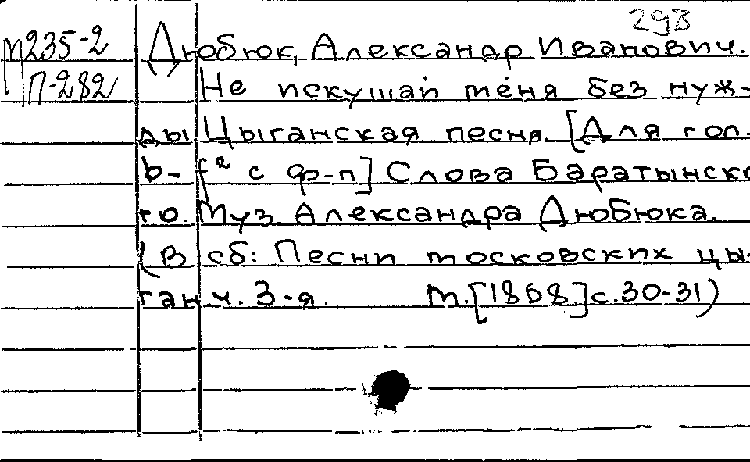 293
М235-2 Дюбюк, Александр Иванович.
П-282 Не искушай меня без нуж-
ды Цыганская песня. [Для гол.
b-f² с ф-п] Слова Баратынско
го. Муз Александра Дюбюка.
(В сб: Песни московских цы-
ган ч. 3-я. М. [1868] с. 30-31)